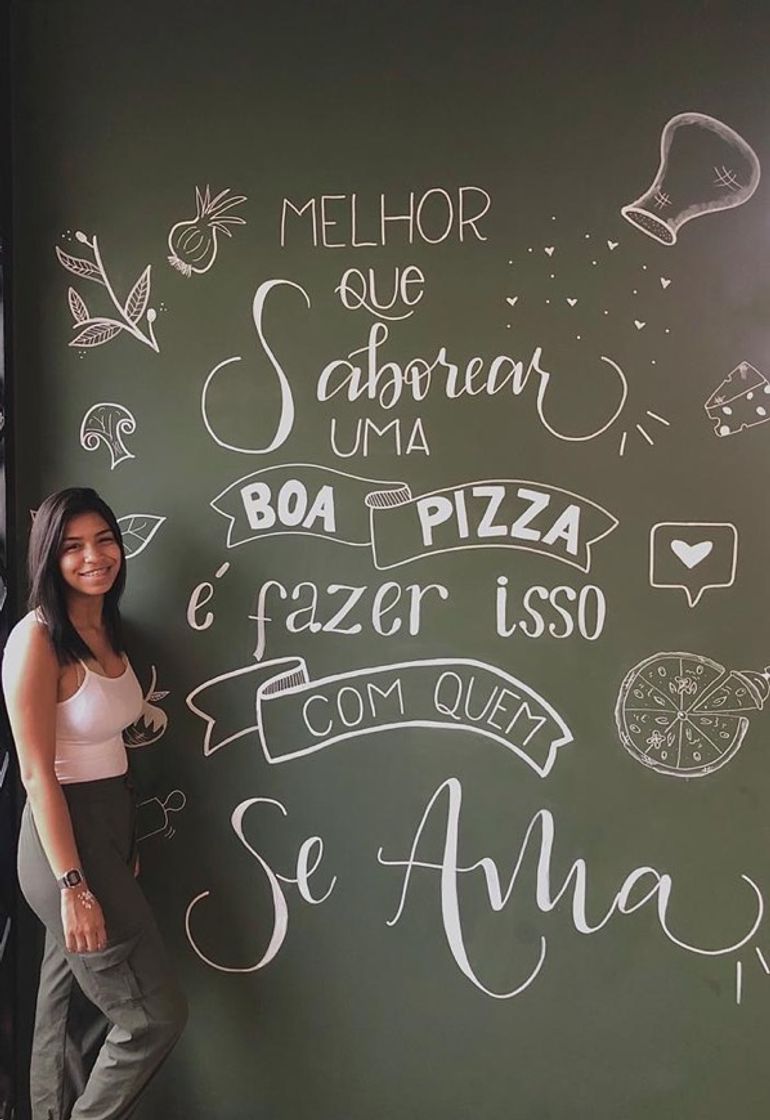 MELHOR
QUE
Saborear
UMA
BOA PIZZA
é fazer isso
COM QUEM
Se Ama